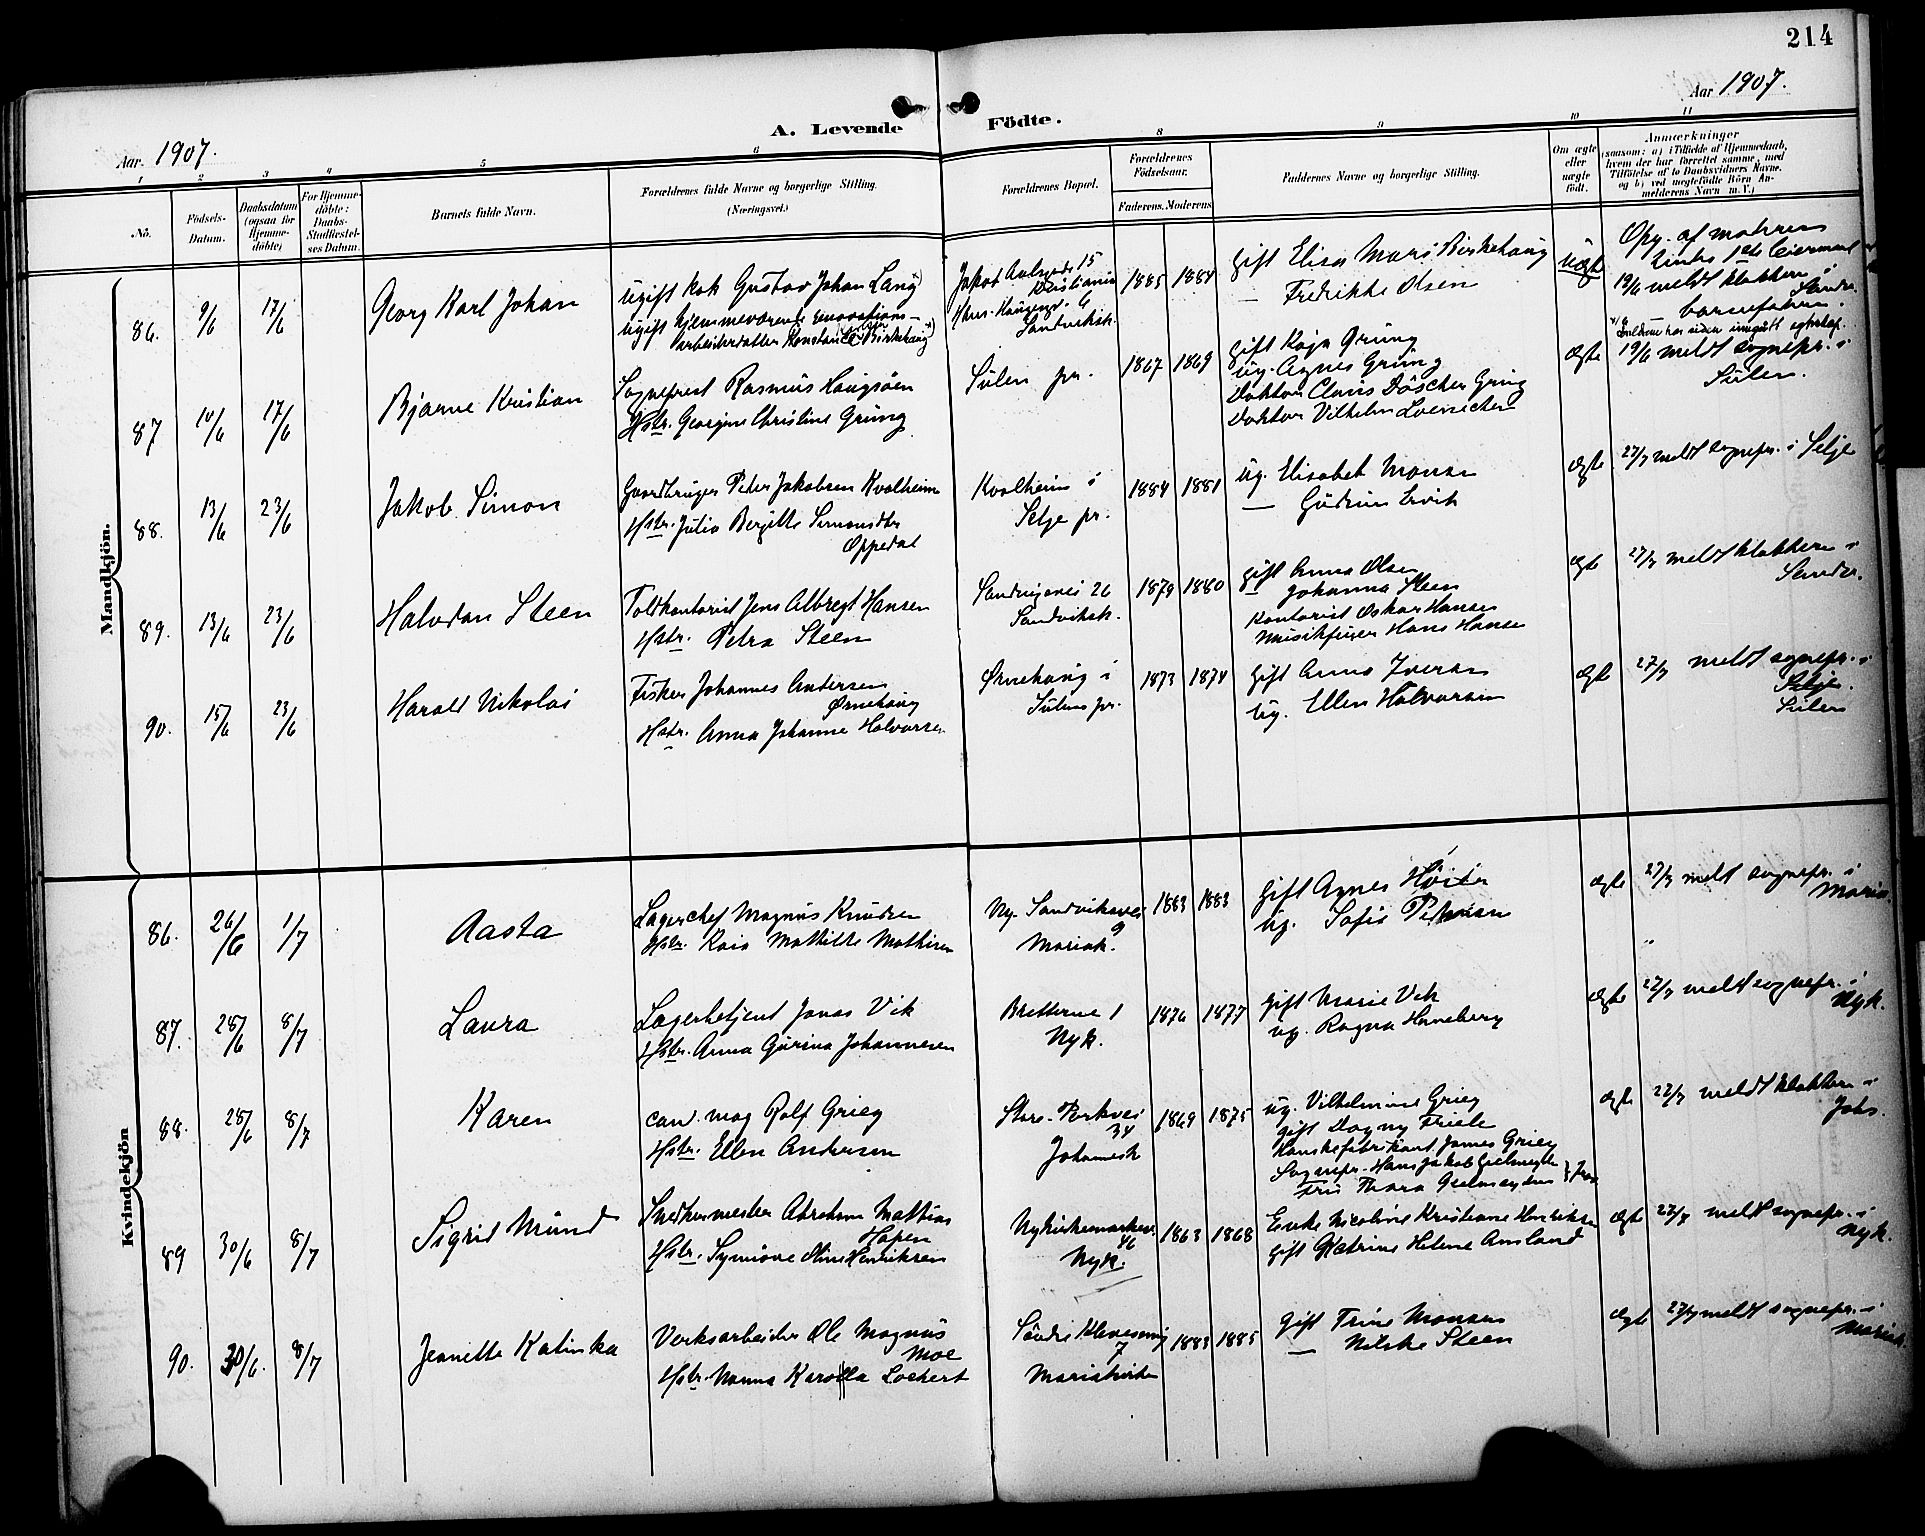 214
Aar. 1907.
A. Levende Födte.
Aar 1907.
1 2 3 4 5 6 8 9 10 11
No.
Födsels-Datum.
Daabsdatum (ogsaa for Hjemme-döbte)
For Hjemme-döbte: Daabs-Stadfæstel-ses Datum.
Barnets fulde Navn.
Forældrenes fulde Navne og borgerlige Stilling.
(Næringsvei.)
Forældrenes Bopæl.
Forældrenes Födselsaar.
Faderens. Moderens
Faddernes Navne og borgerlige Stilling.
Om ægte eller uægte födt.
Anmærkninger
(saasom: a) i Tilfælde af Hjemmedaab,
hvem der har forrettet samme, med
Tilföielse af to Daabsvidners Navne,
og b) ved uægtefödte Börn An-
melderens Navn m. V.)
Mandkjön.
86. 9/6 17/6 Georg Karl Johan
ugift kok Gustav Johan Lang
ugift hjemmeværende renovations-
arbeiderdatter Konstance Birkehaug
Jakob Aalsgade 15
Kristiania
Sandviksk.
1885 1884
gift Elisa Mari Birkehaug
— Fredrikke Olsen
uægte
Opg. af moderen
19/6 meldt klokkeren i
Sandv.
barnefaderen.
87 10/6 17/6 Bjarne Kristian
Sogneprest Rasmus Haugsöen
Hstr. Georgine Christine Grung
Sulen pr.
1867 1869
gift Kaja Grung
ug. Agnes Grung
Doktor Claus Döscher Grung
Doktor Vilhelm Loenichen
ægte
19/6 meldt sognepr. i
Sulen.
88. 13/6 23/6 Jakob Simon
Gaardbruger Peter Jakobsen Kvalheim
Hstr. Julia Bergitte Simonsdtr
Oppedal
Kvalheim i
Selje pr.
1884 1881
ug. Elisabet Monsen
— Gudrun Ervik
ægte
27/7 meldt sognepr. i Selje
89. 13/6 23/6 Halvdan Steen
Toldkontorist Jens Albregt Hansen
Hstr. Petra Steen
Sandvigsvei 26
Sandviksk.
1879 1880
gift Anna Olsen
Johanna Steen
Kontorist Oskar Hansen
Musikfuger Hans Hansen
ægte
27/7 meldt klokkeren i
Sandv.
90. 15/6 23/6 Harald Nikolai
Fisker Johannes Andersen
Ørnehaug
Hstr. Anna Johanne Halvorsen
Ørnehaug i
Sulens pr.
1873 1874
gift Anna Iversen
ug. Ellen Halvorsen
ægte
27/7 meldt sognepr. i
Selje.
Sulen
Kvindekjön
86. 26/6 1/7 Aasta
Lagerchef Magnus Knudsen
Hstr. Kaia Mathilde Mathisen
Ny. Sandviksvei
9
Mariak.
1883 1883
gift Agnes Höier
ug. Sofie Petersen
ægte
27/7 meldt sognepr. i
Maria.
87. 28/6 8/7 Laura
Lagerbetjent Jonas Vik
Hstr. Anna Gurina Johannesen
Bretterne 1
Nyk.
1876 1877
gift Marie Vik
ug. Ragna Haneberg
ægte
27/7 meldt sognepr. i
Nyk.
88. 28/6 8/7 Karen
cand. mag Rolf Grieg
Hstr. Ellen Andersen
Store-Parkvei
34
Johannesk
1869 1875
ug. Vilhelmine Grieg
gift Dagny Friele
Hanskefabrikant James Grieg
Sognepr. Hans Jakob Gjelmeyden
Fru Thora Gjelmeyden
ægte
27/7 meldt klokkeren i
Johs.
89 30/6 8/7 Sigrid Mund
Snedkermester Abraham Mattias
Hopen
Hstr. Synnöve Oline Henriksen
Nykirkemarken.
46
Nyk.
1863 1868
Enke Nicoline Kristiane Henriksen
gift Katrine Helene Amland
ægte
27/7 meldt sognepr. i
Nyk.
90. 30/6. 8/7 Jeanette Katinka
Verksarbeider Ole Magnus
Moe
Hstr. Nanna Karolla Lockert
Söndre Klevesmug
7
Mariakirke
1883 1885
gift Trine Monsen
— Nilske Steen
ægte
27/7 meldt sognepr. i
Mariak.